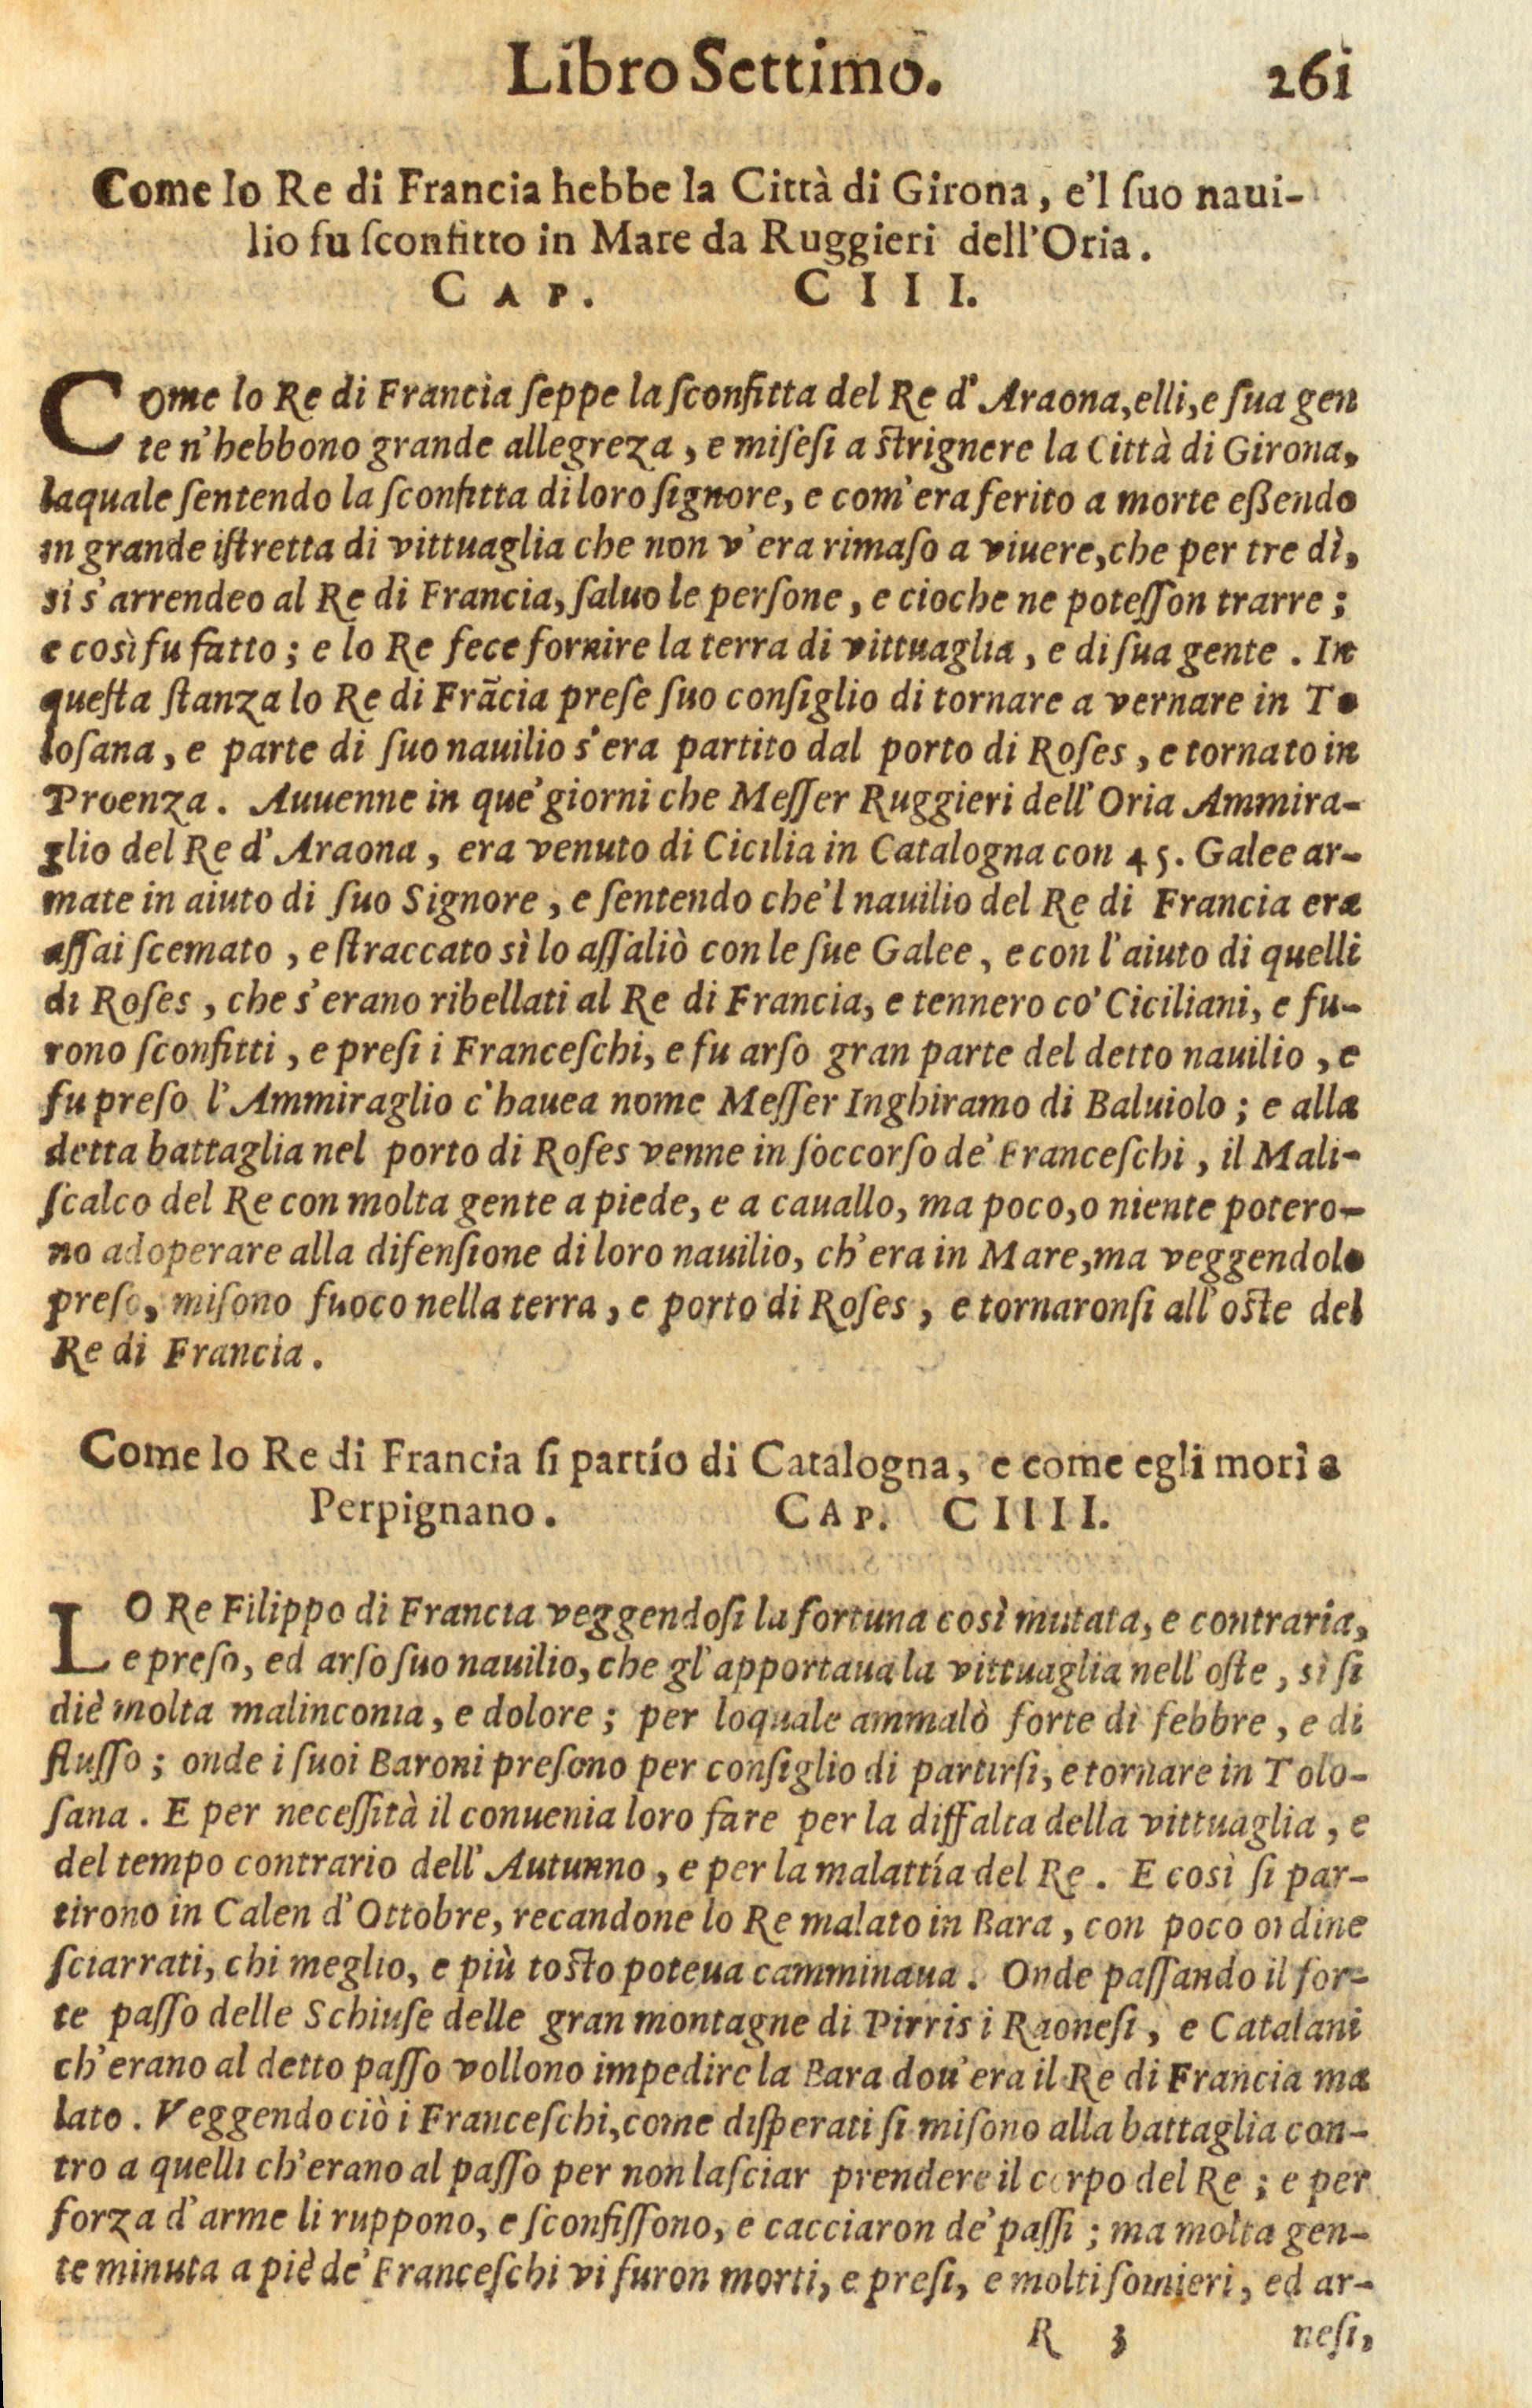 Libro Settimo. 261
Come lo Re di Francia hebbe la Città di Girona, e'l ſuo naui-
lio fu ſconfitto in Mare da Ruggieri dell'Oria.
CAP. CIII.
Come lo Re di Francia ſeppe la ſconfitta del Re d'Araona, elli, e ſua gen
te n'hebbono grande allegreza, e miſeſi a ſtrignere la Città di Girona,
laquale ſentendo la ſconfitta di loro ſignore, e com'era ferito a morte eßendo
in grande iſtretta di vittuaglia che non v'era rimaſo a viuere, che per tre dì,
sì s'arrendeo al Re di Francia, ſaluo le perſone, e cioche ne poteſſon trarre;
e così fu fatto; e lo Re fece fornire la terra di vittuaglia, e di ſua gente. In
queſta ſtanza lo Re di Frãcia preſe ſuo conſiglio di tornare a vernare in To
loſana, e parte di ſuo nauilio s'era partito dal porto di Roſes, e tornato in
Proenza. Auuenne in que' giorni che Meſſer Ruggieri dell'Oria Ammira-
glio del Re d'Araona, era venuto di Cicilia in Catalogna con 45. Galee ar-
mate in aiuto di ſuo Signore, e ſentendo che'l nauilio del Re di Francia era
aſſai ſcemato, e ſtraccato sì lo aſſaliò con le ſue Galee, e con l'aiuto di quelli
di Roſes, che s'erano ribellati al Re di Francia, e tennero co' Ciciliani, e fu-
rono ſconfitti, e preſi i Franceſchi, e fu arſo gran parte del detto nauilio, e
fu preſo l'Ammiraglio c'hauea nome Meſſer Inghiramo di Baluiolo; e alla
detta battaglia nel porto di Roſes venne in ſoccorſo de' Franceſchi, il Mali-
ſcalco del Re con molta gente a piede, e a cauallo, ma poco, o niente potero-
no adoperare alla difenſione di loro nauilio, ch'era in Mare, ma veggendolo
preſo, miſono fuoco nella terra, e porto di Roſes, e tornaronſi all'oſte del
Re di Francia.
Come lo Re di Francia ſi partío di Catalogna, e come egli morì a
Perpignano. CAP. CIIII.
LO Re Filippo di Francia veggendoſi la fortuna così mutata, e contraria,
e preſo, ed arſo ſuo nauilio, che gl'apportaua la vittuaglia nell'oſte, sì ſi
diè molta malinconia, e dolore; per loquale ammalò forte di febbre, e di
fluſſo; onde i ſuoi Baroni preſono per conſiglio di partirſi, e tornare in Tolo-
ſana. E per neceſſità il conuenia loro fare per la diffalta della vittuaglia, e
del tempo contrario dell'Autunno, e per la malattía del Re. E così ſi par-
tirono in Calen d'Ottobre, recandone lo Re malato in Bara, con poco ordine
ſciarrati, chi meglio, e più toſto poteua camminaua. Onde paſſando il for-
te paſſo delle Schiuſe delle gran montagne di Pirris i Raoneſi, e Catalani
ch'erano al detto paſſo vollono impedire la Bara dou'era il Re di Francia ma
lato. Veggendo ciò i Franceſchi, come diſperati ſi miſono alla battaglia con-
tro a quelli ch'erano al paſſo per non laſciar prendere il corpo del Re; e per
forza d'arme li ruppono, e ſconfiſſono, e cacciaron de' paſſi; ma molta gen-
te minuta a piè de' Franceſchi vi furon morti, e preſi, e molti ſomieri, ed ar-
R 3 neſi,